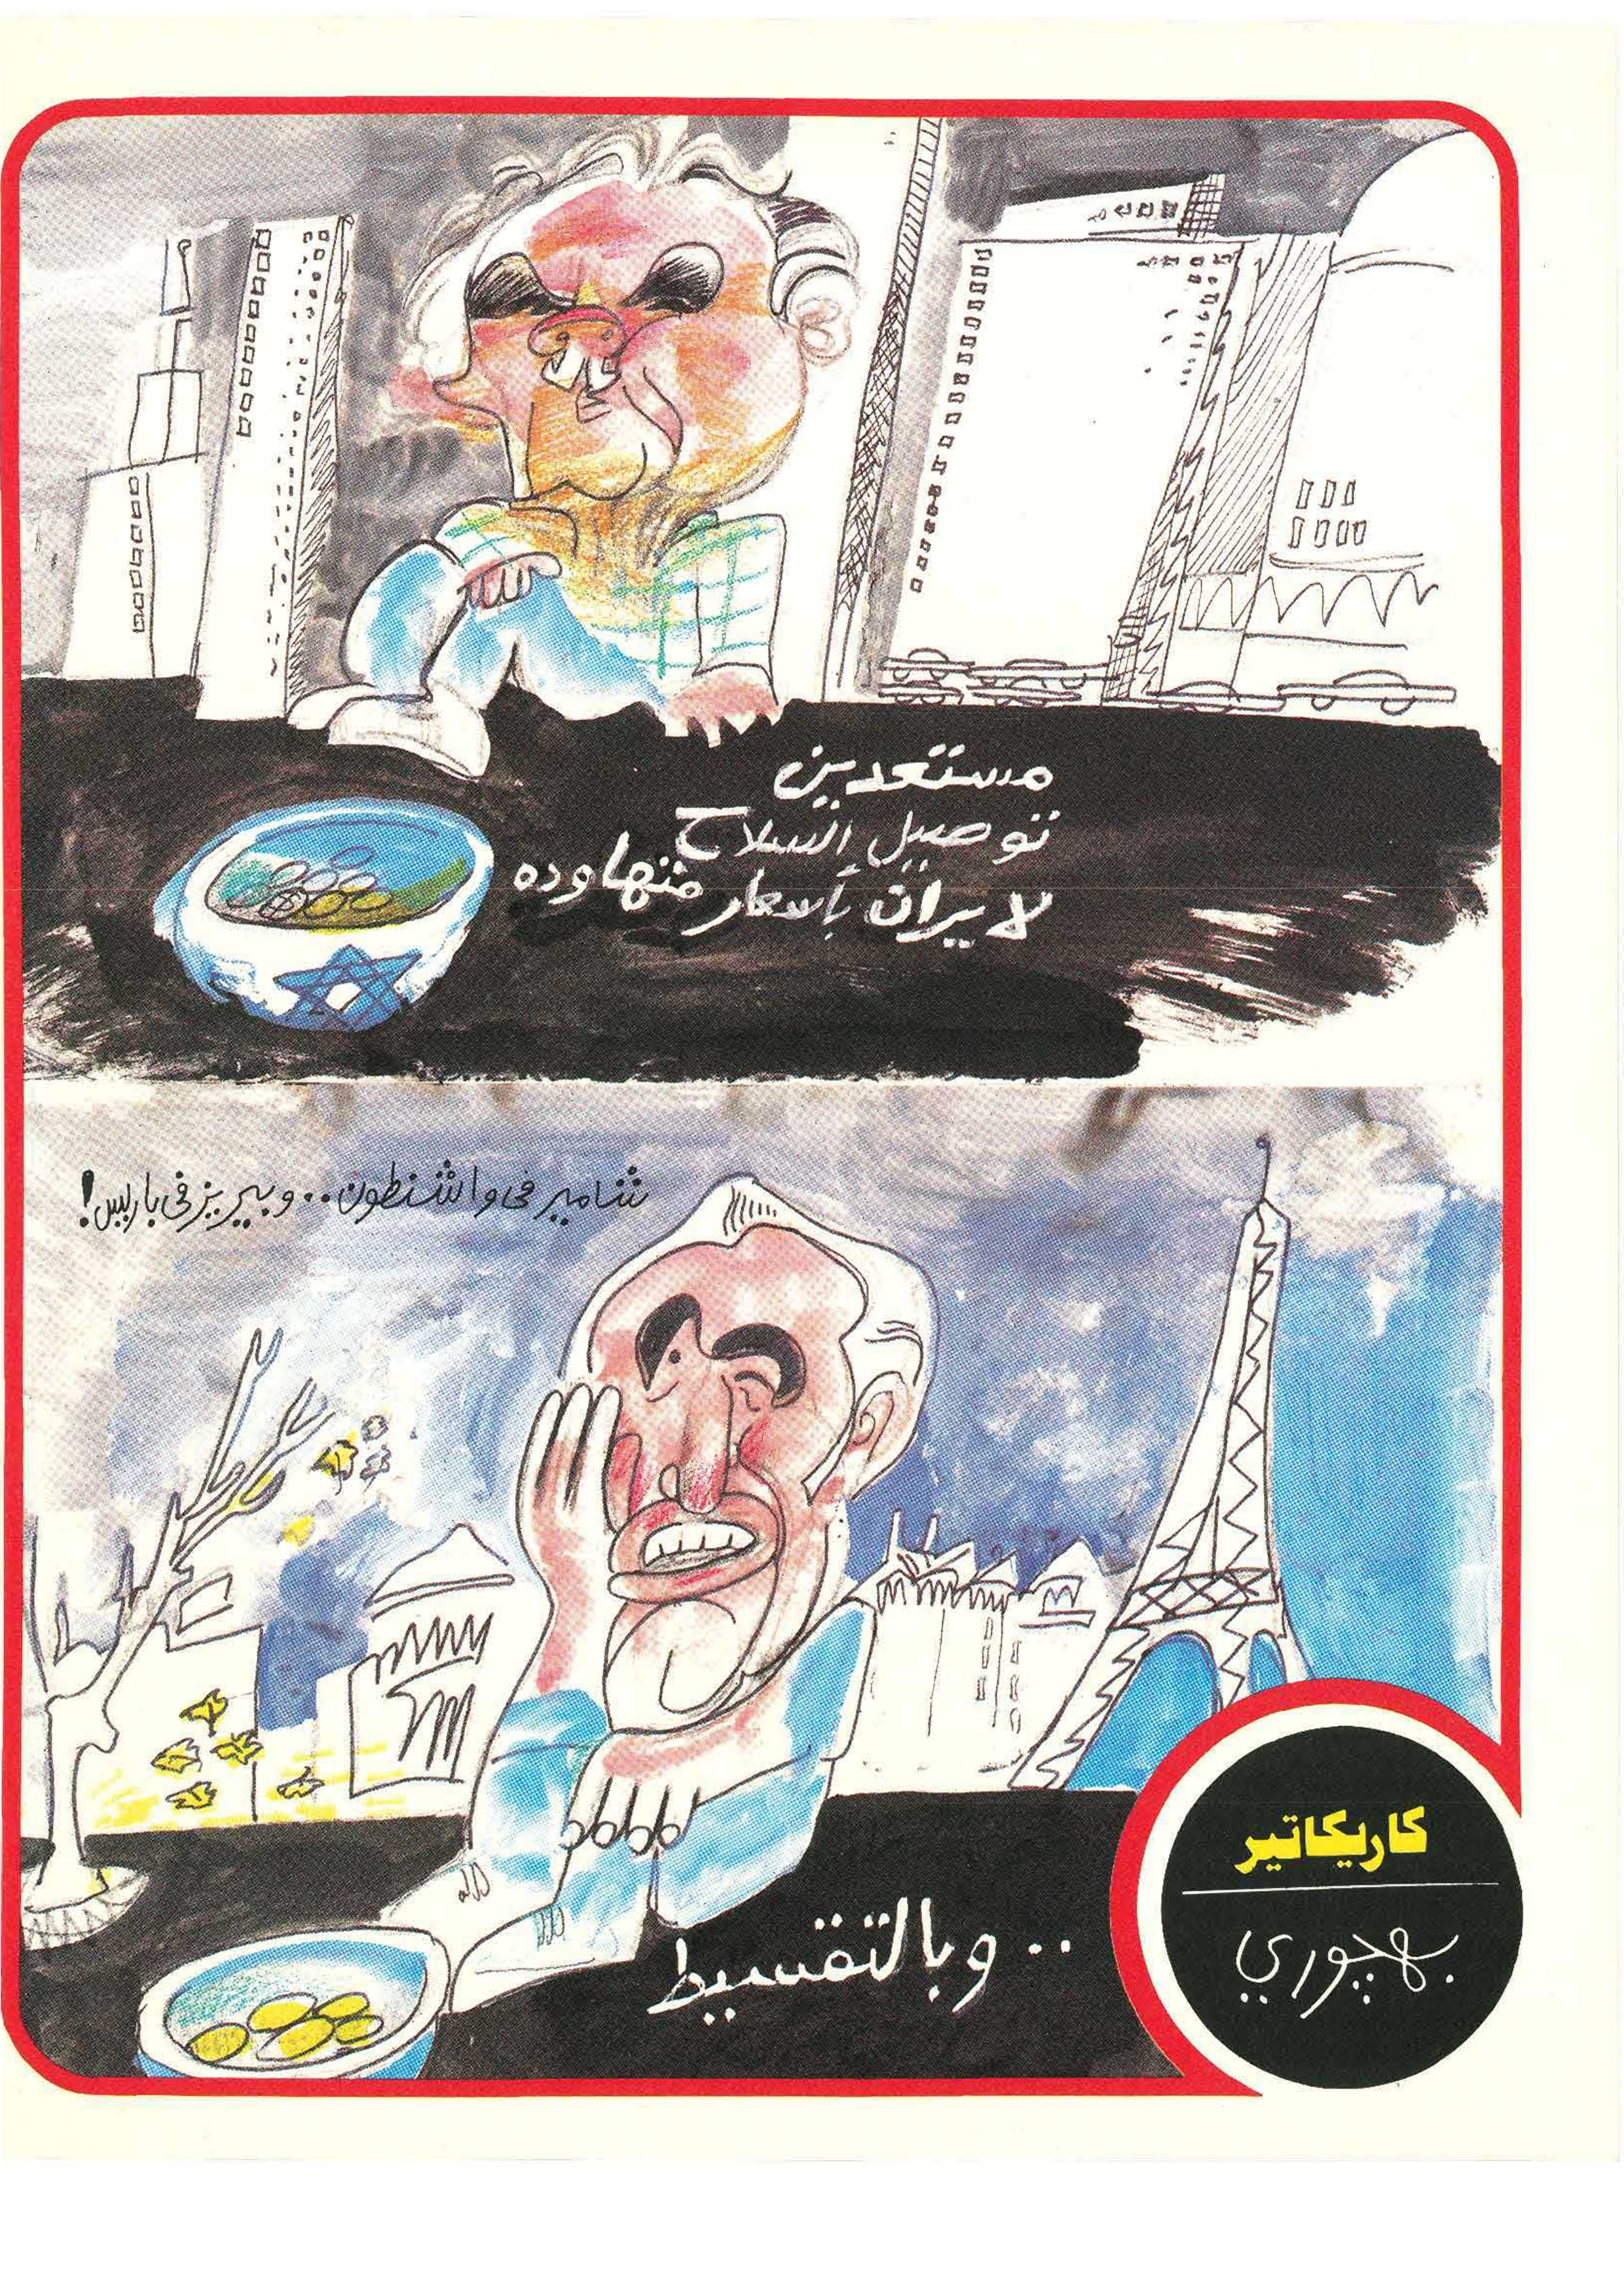 مستعدين
توصيل السلاح
لايران بأسعار متهاوده
شامير فى واشنطون .. وبيريز فى باريس!
.. وبالتقسيط
كاريكاتير
بهچوري